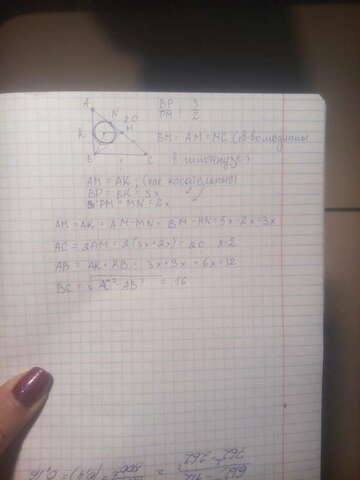 A
N
20
K
M
B
C
BP/PM = 3/2
BM = AM = MC (св-во медианы
в
AM = AK, (как касательные)
BP = BK = 3x
PM = MN = 2x
AN = AK = AM - MN = BM - MN = 5x - 2x = 3x
AC = 2AM = 2(3x + 2x) = 20 x = 2
AB = AK + KB = 3x + 3x = 6x = 12
BC = √AC² - AB² = 16